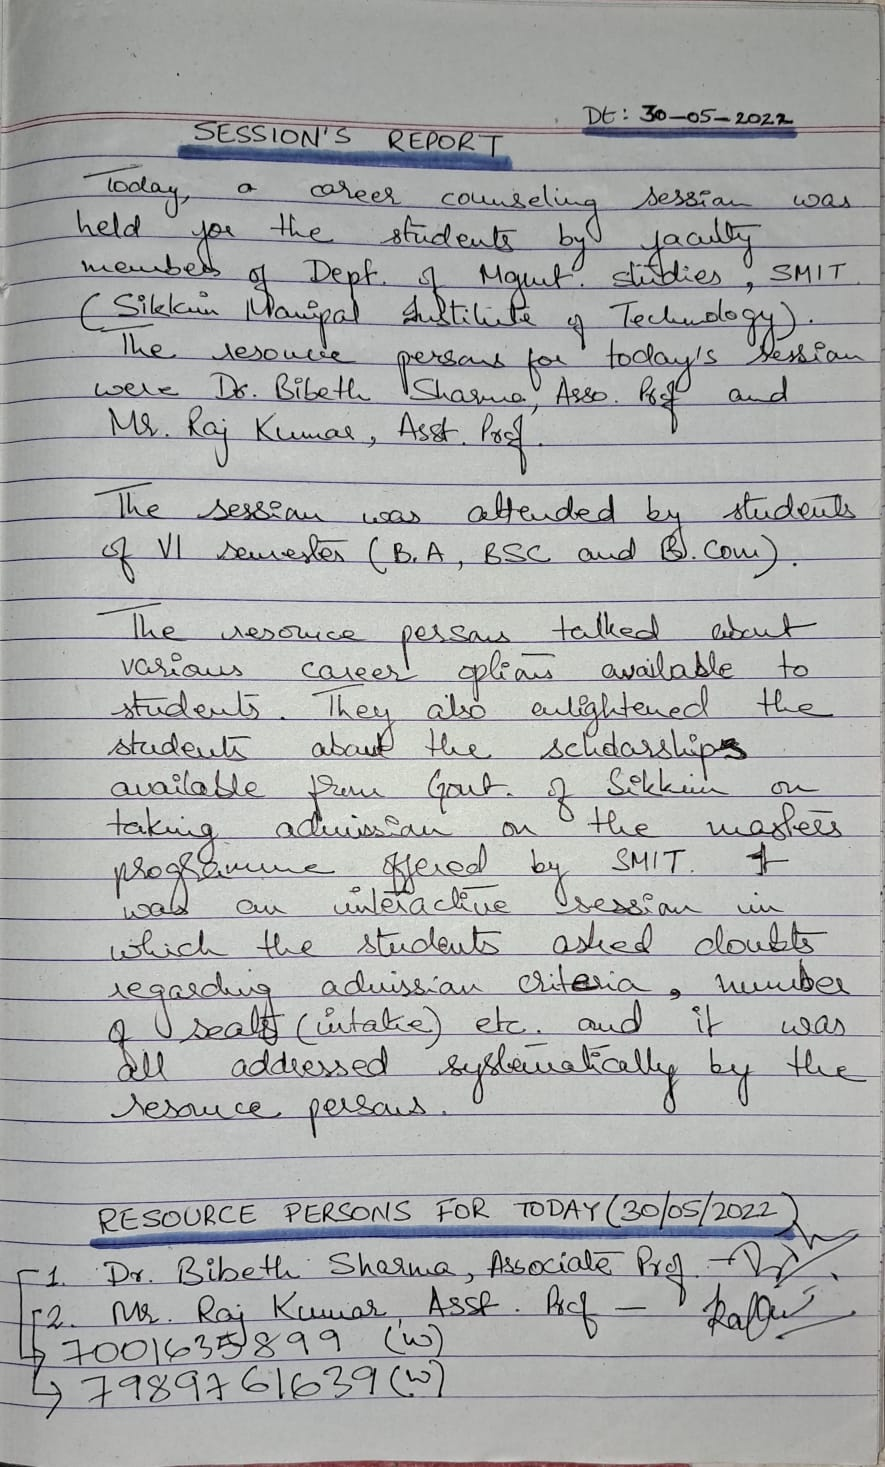 Dt: 30-05-2022
SESSION'S REPORT
Today, a career counseling session was
held for the students by faculty
members of Dept. of Mgmt. studies, SMIT
(Sikkim Manipal Institute of Technology).
The resource persons for today's session
were Dr. Bibeth Sharma, Asso. Prof and
Mr. Raj Kumar, Asst. Prof.
The session was attended by students
of VI semester (B.A, BSC and B.Com).
The resource persons talked about
various career options available to
students. They also enlightened the
students about the scholarships
available from Govt. of Sikkim on
taking admission on the masters
programme offered by SMIT. It
was an interactive session in
which the students asked doubts
regarding admission criteria, number
of seats (intake) etc. and it was
all addressed systematically by the
resource persons.
RESOURCE PERSONS FOR TODAY (30/05/2022)
1. Dr. Bibeth Sharma, Associate Prof. -
2. Mr. Raj Kumar, Asst. Prof -
7001635899 (w)
7989761639 (w)